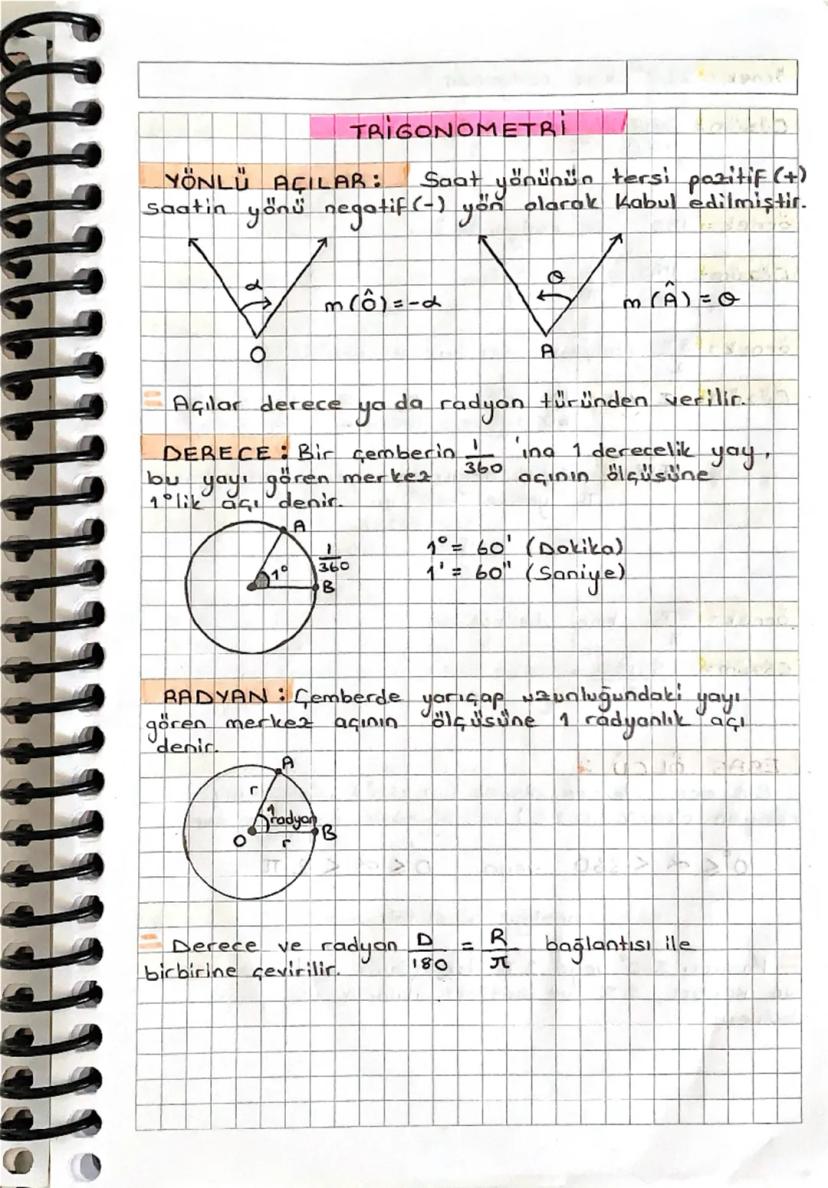 TRİGONOMETRİ
YÖNLÜ AÇILAR: Saat yönünün tersi pozitif (+)
saatin yönü negatif (-) yön olarak kabul edilmiştir.
α
m(Ô) = -α
O
θ
m(Â) = θ
A
= Açılar derece ya da radyan türünden verilir.
DERECE: Bir çemberin 1/360 'ına 1 derecelik yay,
bu yayı gören merkez açının ölçüsüne
1° lik açı denir.
A
1°
1/360
B
1° = 60' (Dakika)
1' = 60" (Saniye)
RADYAN: Çemberde yarıçap uzunluğundaki yayı
gören merkez açının ölçüsüne 1 radyanlık açı
denir.
A
r
1 radyan
O
r
B
= Derece ve radyan D/180 = R/π bağlantısı ile
birbirine çevirilir.